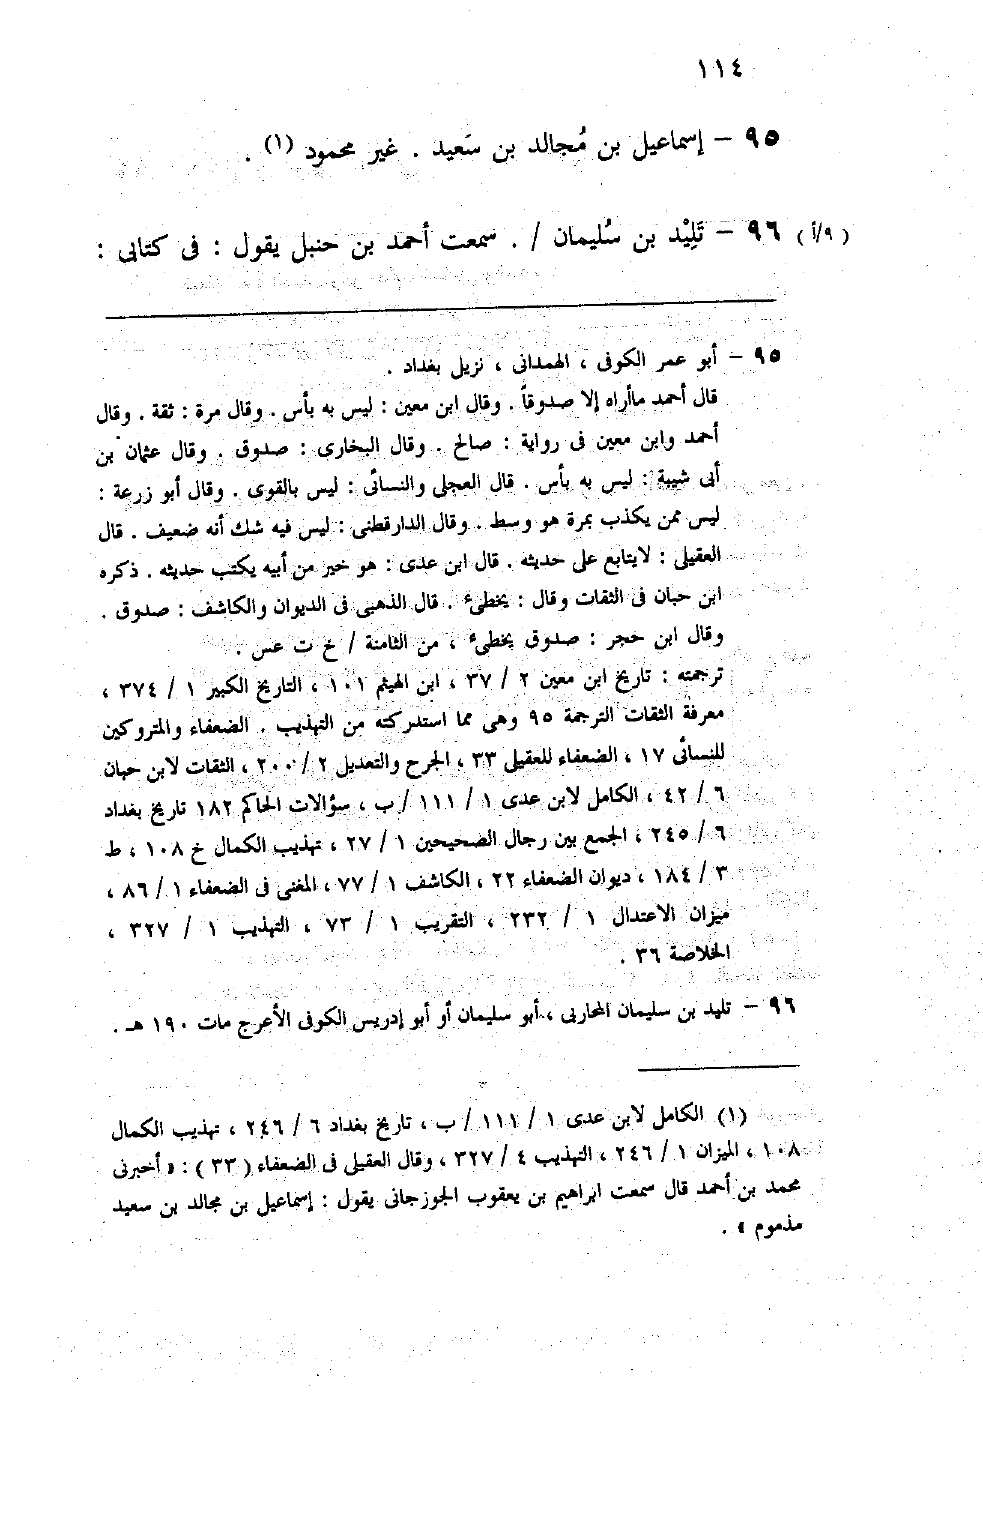 ١١٤
٩٥ – إسماعيل بن مُجالد بن سَعيد . غير محمود (١) .
(٩/أ) ٩٦ – تَلِيْد بن سُليمان / . سمعت أحمد بن حنبل يقول : فى كتابى :
٩٥ – أبو عمر الكوفى ، الهمدانى ، نزيل بغداد .
قال أحمد ماأراه إلا صدوقاً . وقال ابن معين : ليس به بأس . وقال مرة : ثقة . وقال
أحمد وابن معين فى رواية : صالح . وقال البخارى : صدوق . وقال عثمان بن
أبى شيبة : ليس به بأس . قال العجلى والنسائى : ليس بالقوى . وقال أبو زرعة :
ليس ممن يكذب بمرة هو وسط . وقال الدارقطنى : ليس فيه شك أنه ضعيف . قال
العقيلى : لايتابع على حديثه . قال ابن عدى : هو خير من أبيه يكتب حديثه . ذكره
ابن حبان فى الثقات وقال : يخطىء . قال الذهبى فى الديوان والكاشف : صدوق .
وقال ابن حجر : صدوق يخطىء ، من الثامنة / خ ت عس .
ترجمته : تاريخ ابن معين ٢ / ٣٧ ، ابن الهيثم ١٠١ ، التاريخ الكبير ١ / ٣٧٤ ،
معرفة الثقات الترجمة ٩٥ وهى مما استدركته من التهذيب . الضعفاء والمتروكين
للنسائى ١٧ ، الضعفاء للعقيلى ٣٣ ، الجرح والتعديل ٢ / ٢٠٠ ، الثقات لابن حبان
٦ / ٤٢ ، الكامل لابن عدى ١ / ١١١ / ب ، سؤالات الحاكم ١٨٢ تاريخ بغداد
٦ / ٢٤٥ ، الجمع بين رجال الصحيحين ١ / ٢٧ ، تهذيب الكمال خ ١٠٨ ، ط
٣ / ١٨٤ ، ديوان الضعفاء ٢٢ ، الكاشف ١ / ٧٧ ، المغنى فى الضعفاء ١ / ٨٦ ،
ميزان الاعتدال ١ / ٢٣٢ ، التقريب ١ / ٧٣ ، التهذيب ١ / ٣٢٧ ،
الخلاصة ٣٦ .
٩٦ – تليد بن سليمان المحاربى ، أبو سليمان أو أبو إدريس الكوفى الأعرج مات ١٩٠ هـ .
(١) الكامل لابن عدى ١ / ١١١ / ب ، تاريخ بغداد ٦ / ٢٤٦ ، تهذيب الكمال
١٠٨ ، الميزان ١ / ٢٤٦ ، التهذيب ٤ / ٣٢٧ ، وقال العقيلى فى الضعفاء ( ٣٣ ) : « أخبرنى
محمد بن أحمد قال سمعت ابراهيم بن يعقوب الجوزجانى يقول : إسماعيل بن مجالد بن سعيد
مذموم » .